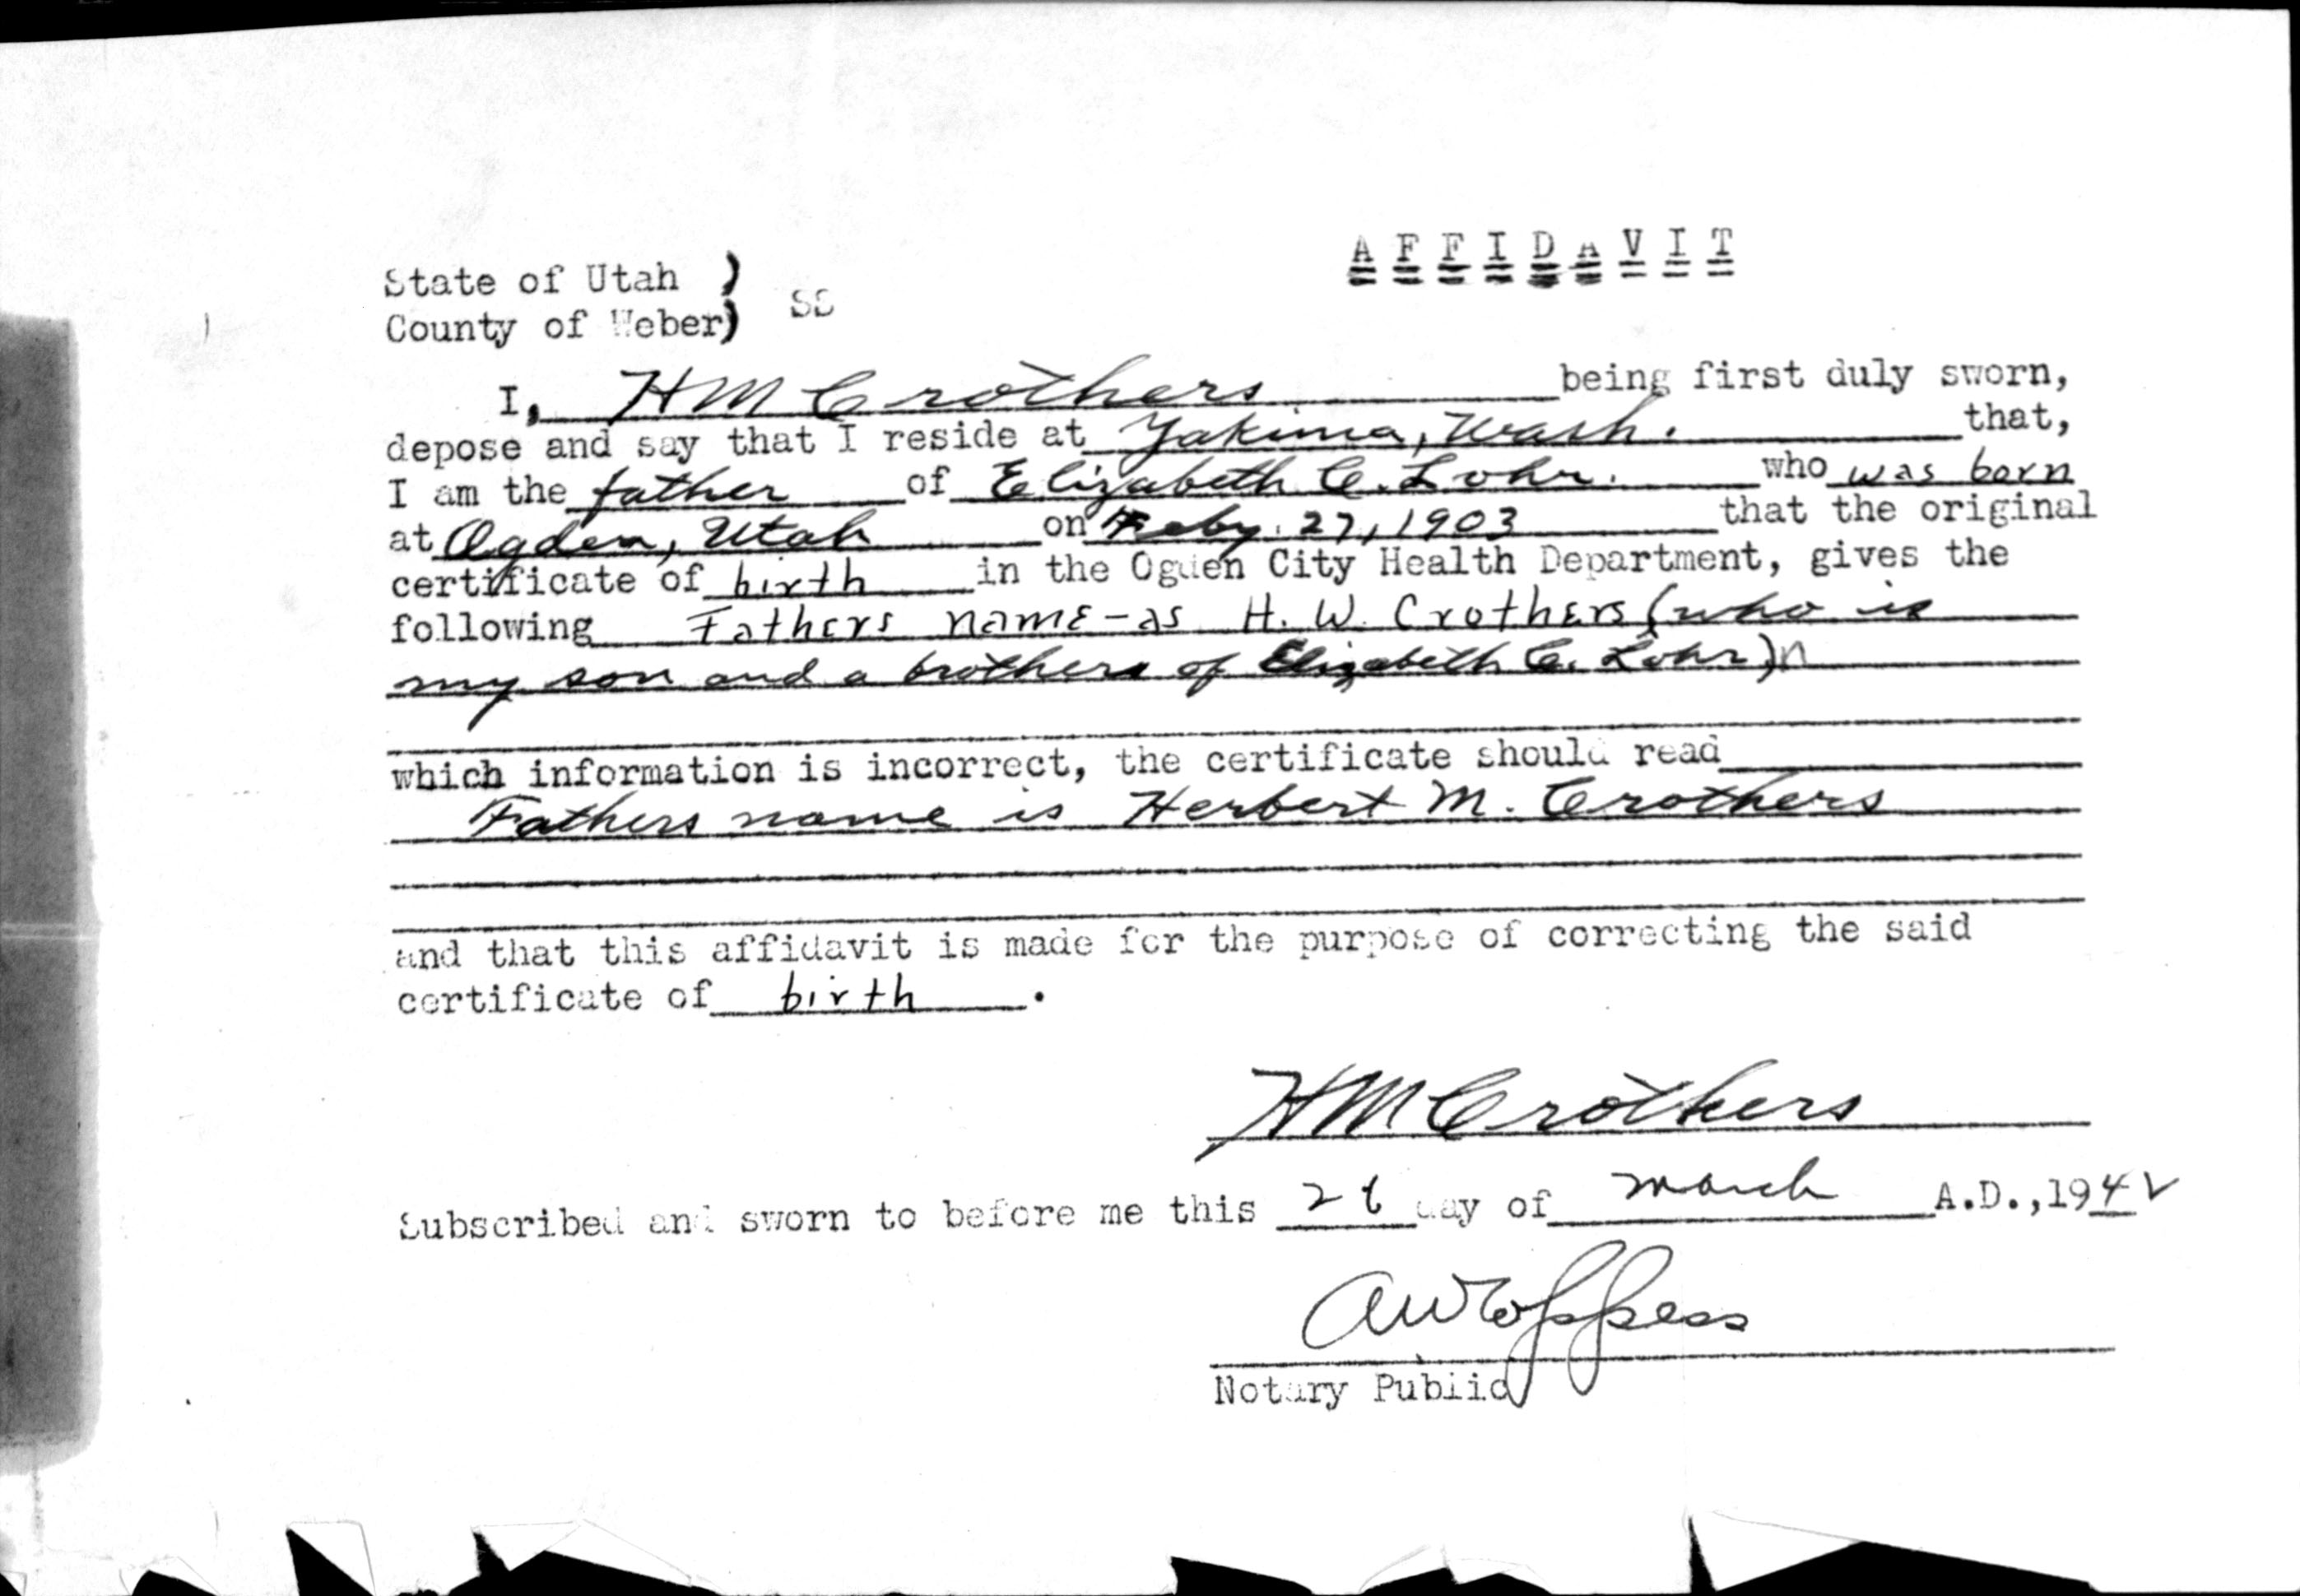 AFFIDAVIT
State of Utah )
County of Weber) SS
I, HM Crothers being first duly sworn,
depose and say that I reside at Yakima, Wash. that,
I am the father of Elizabeth C. Lohr. who was born
at Ogden, Utah on Feby. 27, 1903 that the original
certificate of birth in the Ogden City Health Department, gives the
following Fathers name-as H. W. Crothers (who is
my son and a brother of Elizabeth C. Lohr)
which information is incorrect, the certificate should read
Fathers name is Herbert M. Crothers
and that this affidavit is made for the purpose of correcting the said
certificate of birth.
HM Crothers
Subscribed and sworn to before me this day of March A.D.,1942
Notary Public